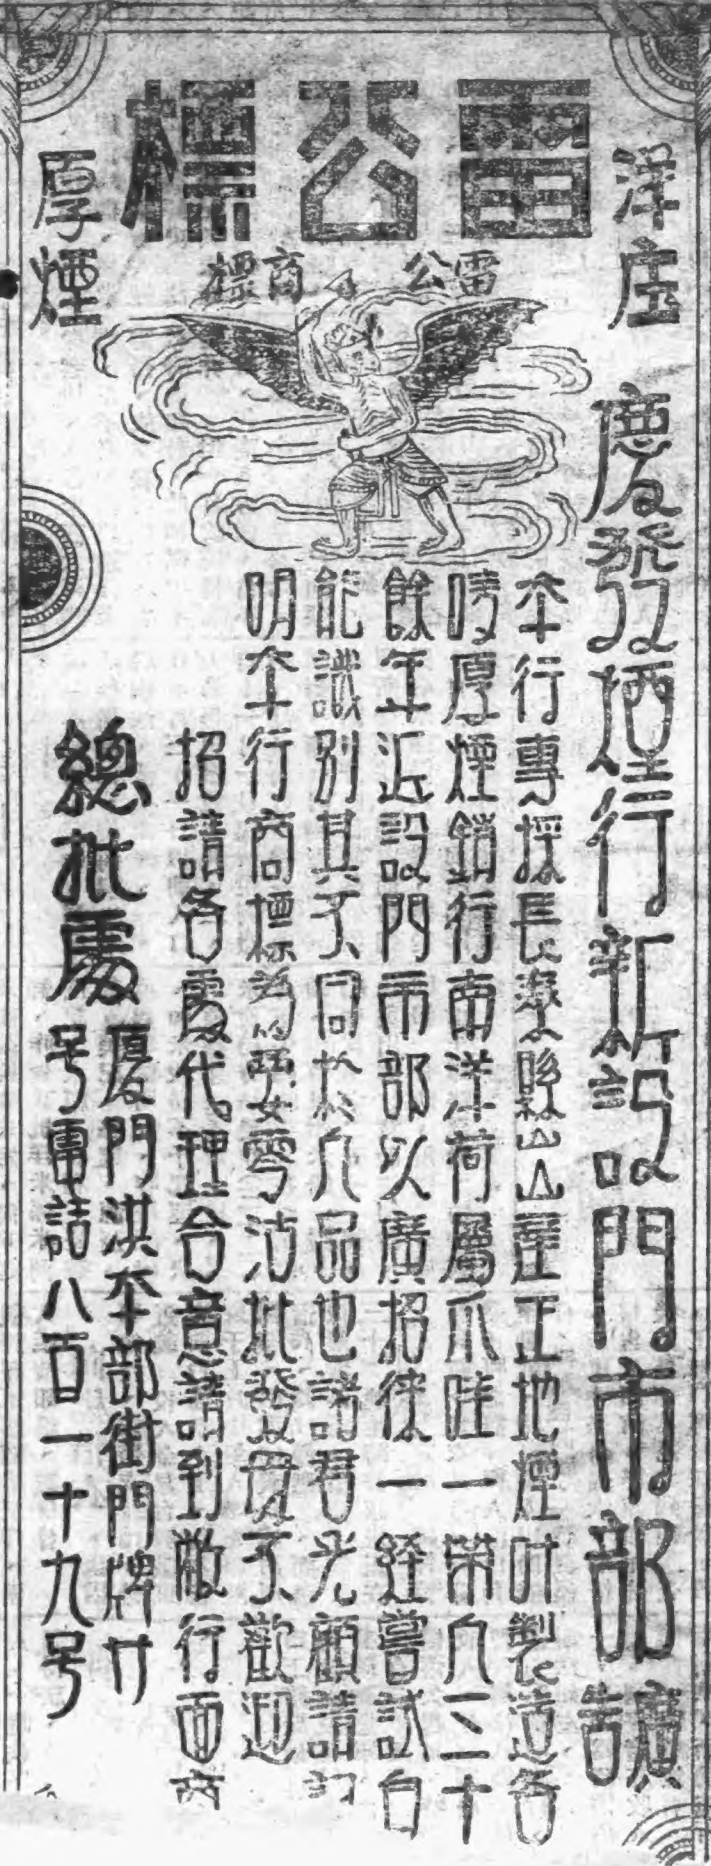 雷公標
洋庄
厚煙
雷公　商標
慶發煙行新設門市部廣告
本行專採長泰縣山山產正地煙叶製造各
嘜厚煙銷行南洋荷屬爪哇一帶凡三十
餘年近設門市部以廣招徠一經嘗試自
能識別其不同於凡品也諸君光顧請認
明本行商標為要零沽批發毋不歡迎
招請各處代理合意請到敝行面商
總批處
廈門洪本部街門牌廿
号電話八百一十九号